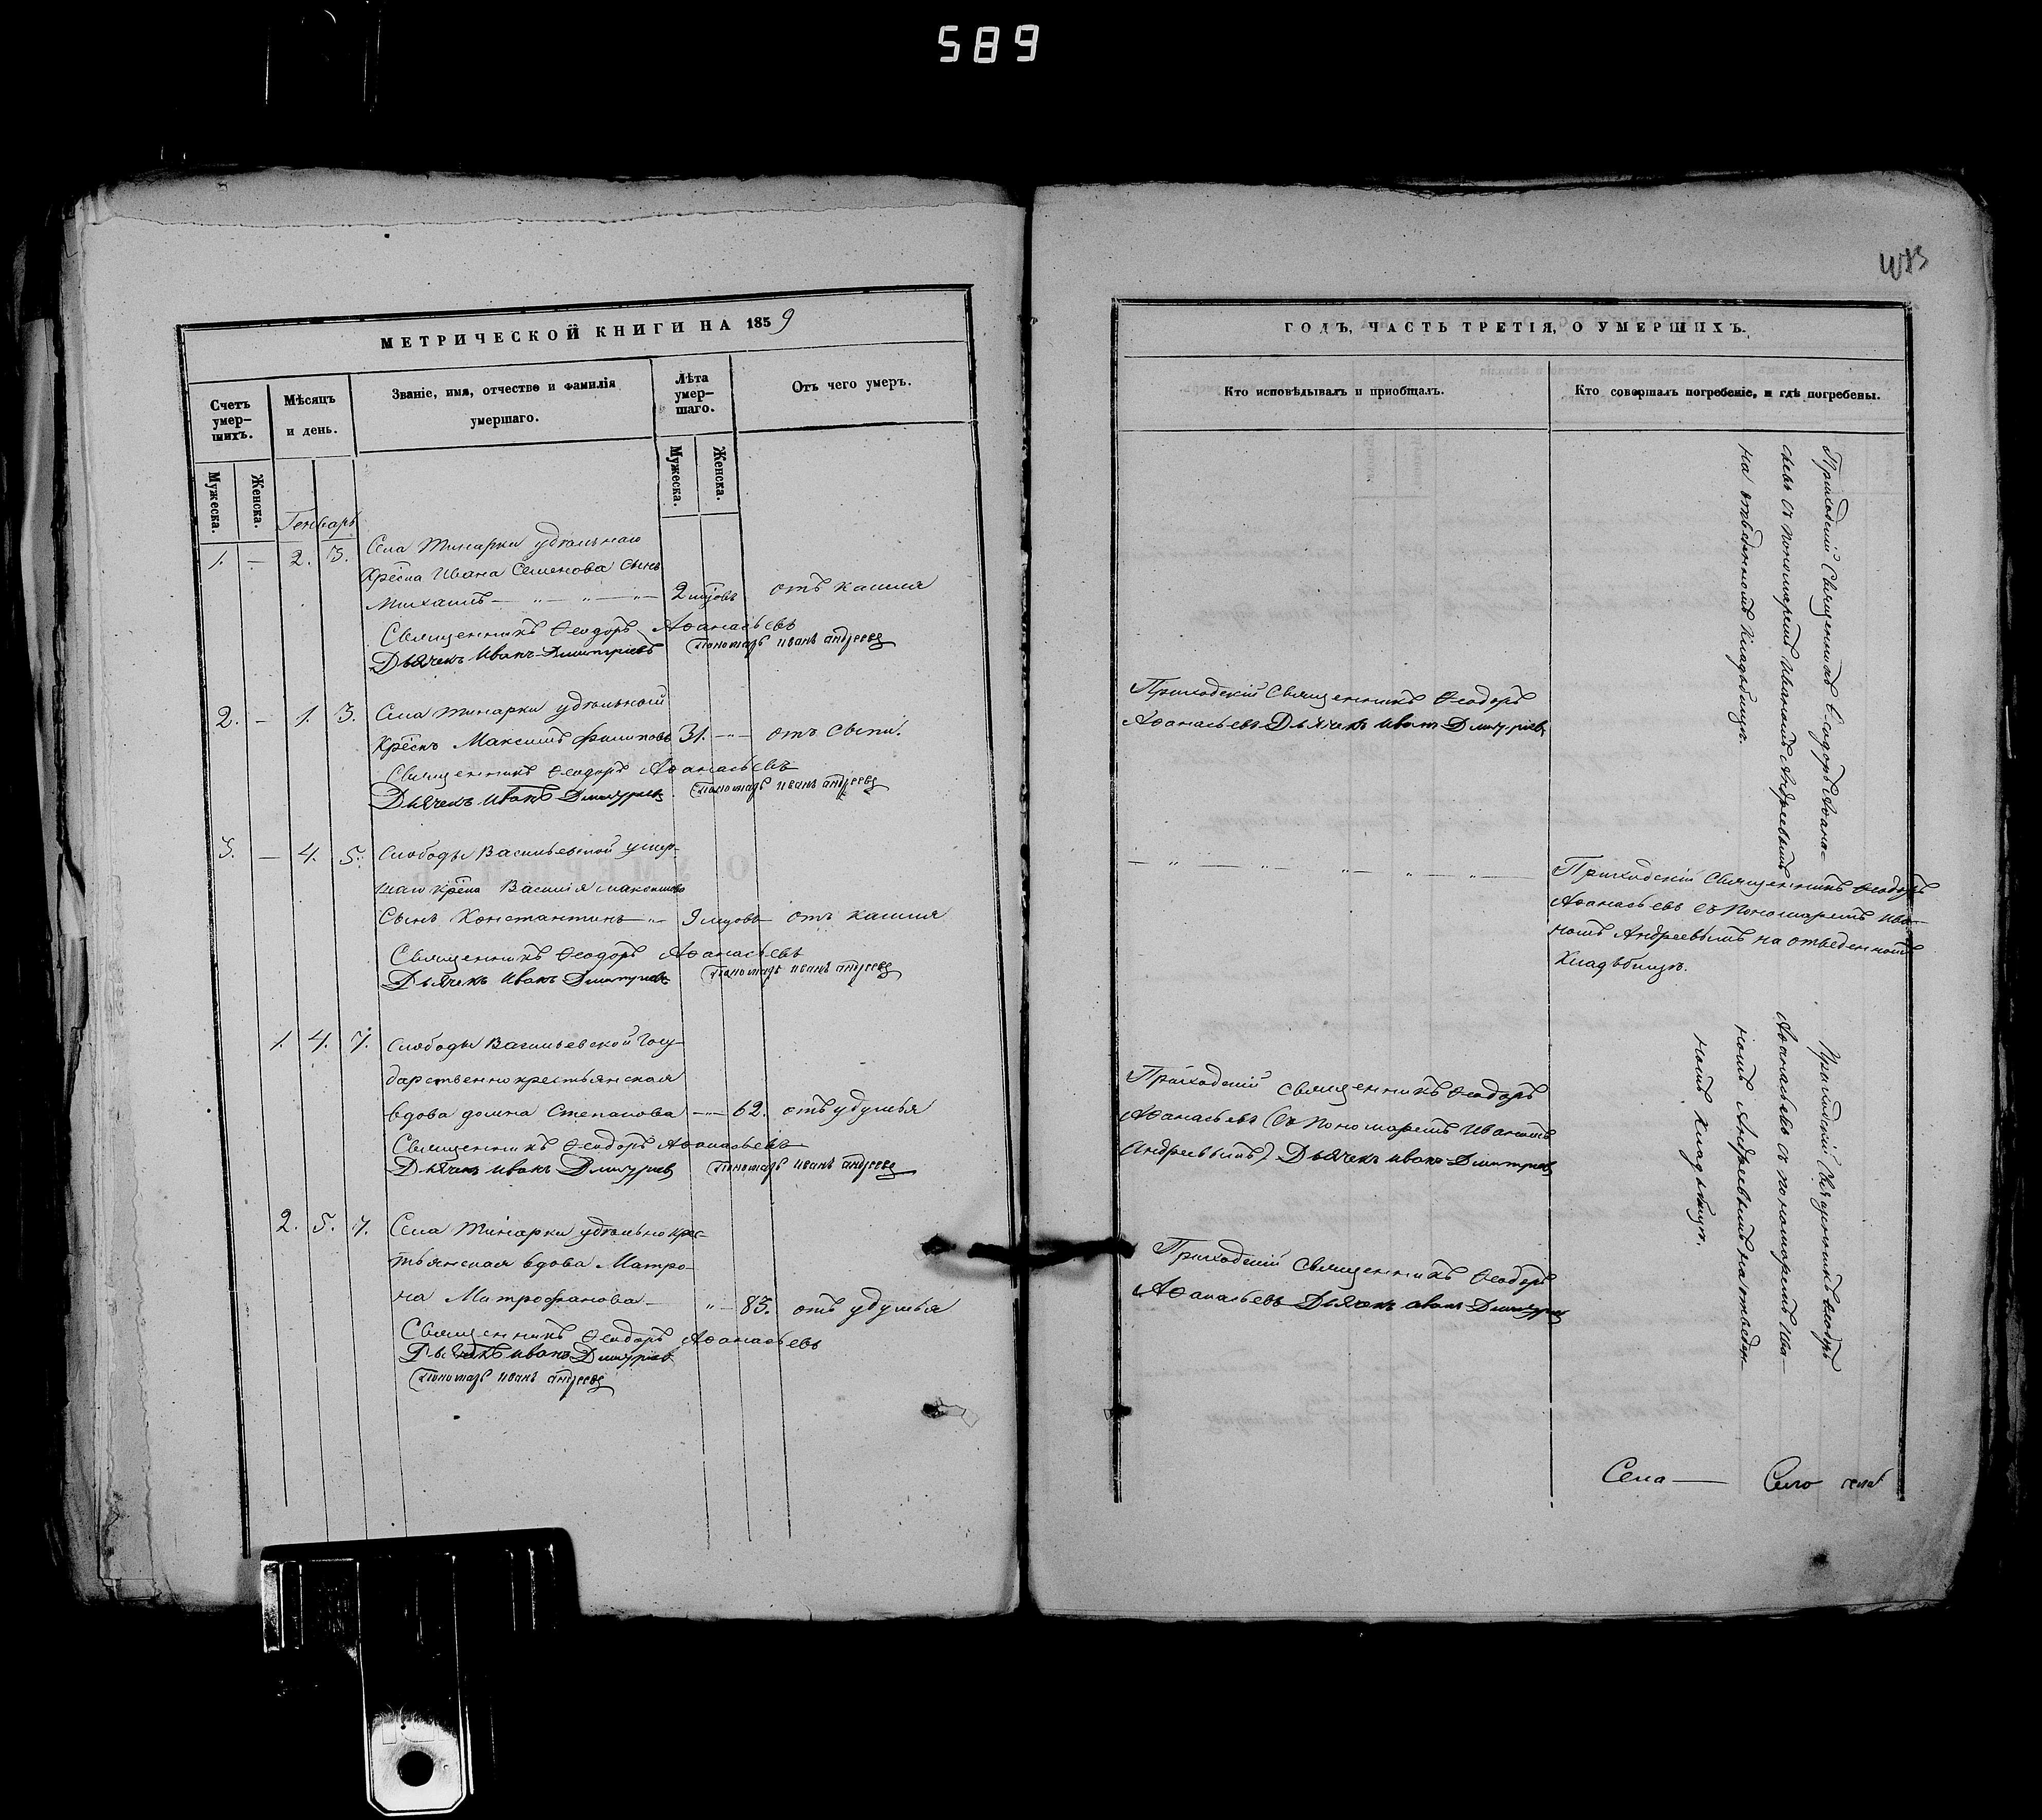 589
МЕТРИЧЕСКОЙ КНИГИ НА 1859
Счетъ умер-шихъ.
Мѣсяцъ и день.
Званіе, имя, отчество и фамилія умершаго.
Лѣта умер-шаго.
Отъ чего умеръ.
Мужеска.
Женска.
Мужеска.
Женска.
Генварь
1. — 2. 3. Села Тинарки удѣльнаго
Крест҃на Ивана Семенова сынъ
Михаилъ — „ — „ — „ — 2 мцовъ отъ кашля
Священникъ Ѳеодоръ Аѳанасьевъ
Дьячекъ Иванъ Дмитріевъ Пономарь Иванъ Андреевъ
2. — 1. 3. Села Тинарки удѣльной
Крест҃нъ Максимъ Филиповъ 31. — „ — отъ сыпи.
Священникъ Ѳеодоръ Аѳанасьевъ
Дьячекъ Иванъ Дмитріевъ Пономарь Иванъ Андреевъ
3. — 4. 5. Слободы Васильевской умер-
шаго Крест҃на Василія Максимова
Сынъ Константинъ — „ — 9 мцовъ отъ кашля
Священникъ Ѳеодоръ Аѳанасьевъ
Дьячекъ Иванъ Дмитріевъ Пономарь Иванъ Андреевъ
1. 4. 7. Слободы Васильевской Госу-
дарственно крестьянская
вдова Домна Степанова — „ — 62. отъ удушья
Священникъ Ѳеодоръ Аѳанасьевъ
Дьячекъ Иванъ Дмитріевъ Пономарь Иванъ Андреевъ
2. 5. 7. Села Тинарки удѣльно крес-
тьянская вдова Матро-
на Митрофанова — „ — 83. отъ удушья
Священникъ Ѳеодоръ Аѳанасьевъ
Дьячекъ Иванъ Дмитріевъ
Пономарь Иванъ Андреевъ
ГОДЪ, ЧАСТЬ ТРЕТІЯ, О УМЕРШИХЪ.
Кто исповѣдывалъ и пріобщалъ.
Кто совершалъ погребеніе, и гдѣ погребены.
Приходскій Священникъ Ѳеодоръ Аѳана-
сьевъ съ пономаремъ Иваномъ Андреевымъ
на отведенномъ кладбищѣ.
Приходскій Священникъ Ѳеодоръ
Аѳанасьевъ Дьячекъ Иванъ Дмитріевъ
— „ — „ — „ — „ — „ —
Приходскій Священникъ Ѳеодоръ
Аѳанасьевъ съ Пономаремъ Ива-
номъ Андреевымъ на отведенномъ
Кладъбищѣ.
Приходскій Священникъ Ѳеодоръ
Аѳанасьевъ (съ Пономаремъ Иваномъ
Андреевымъ) Дьячекъ Иванъ Дмитріевъ
Приходскій Священникъ Ѳеодоръ
Аѳанасьевъ съ пономаремъ Ива-
номъ Андреевымъ на отведен-
номъ Кладъбищѣ.
Приходскій Священникъ Ѳеодоръ
Аѳанасьевъ Дьячекъ Иванъ Дмитріевъ
Села — Село села